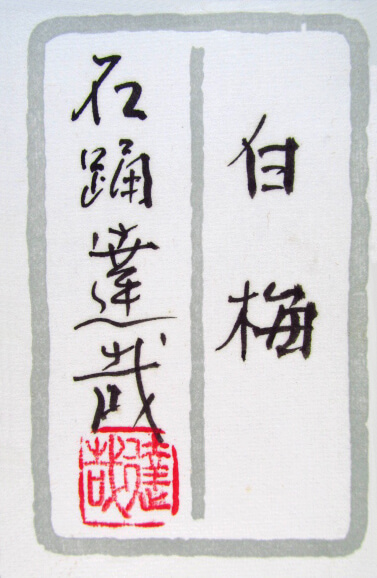 白梅
石踊達哉
達哉